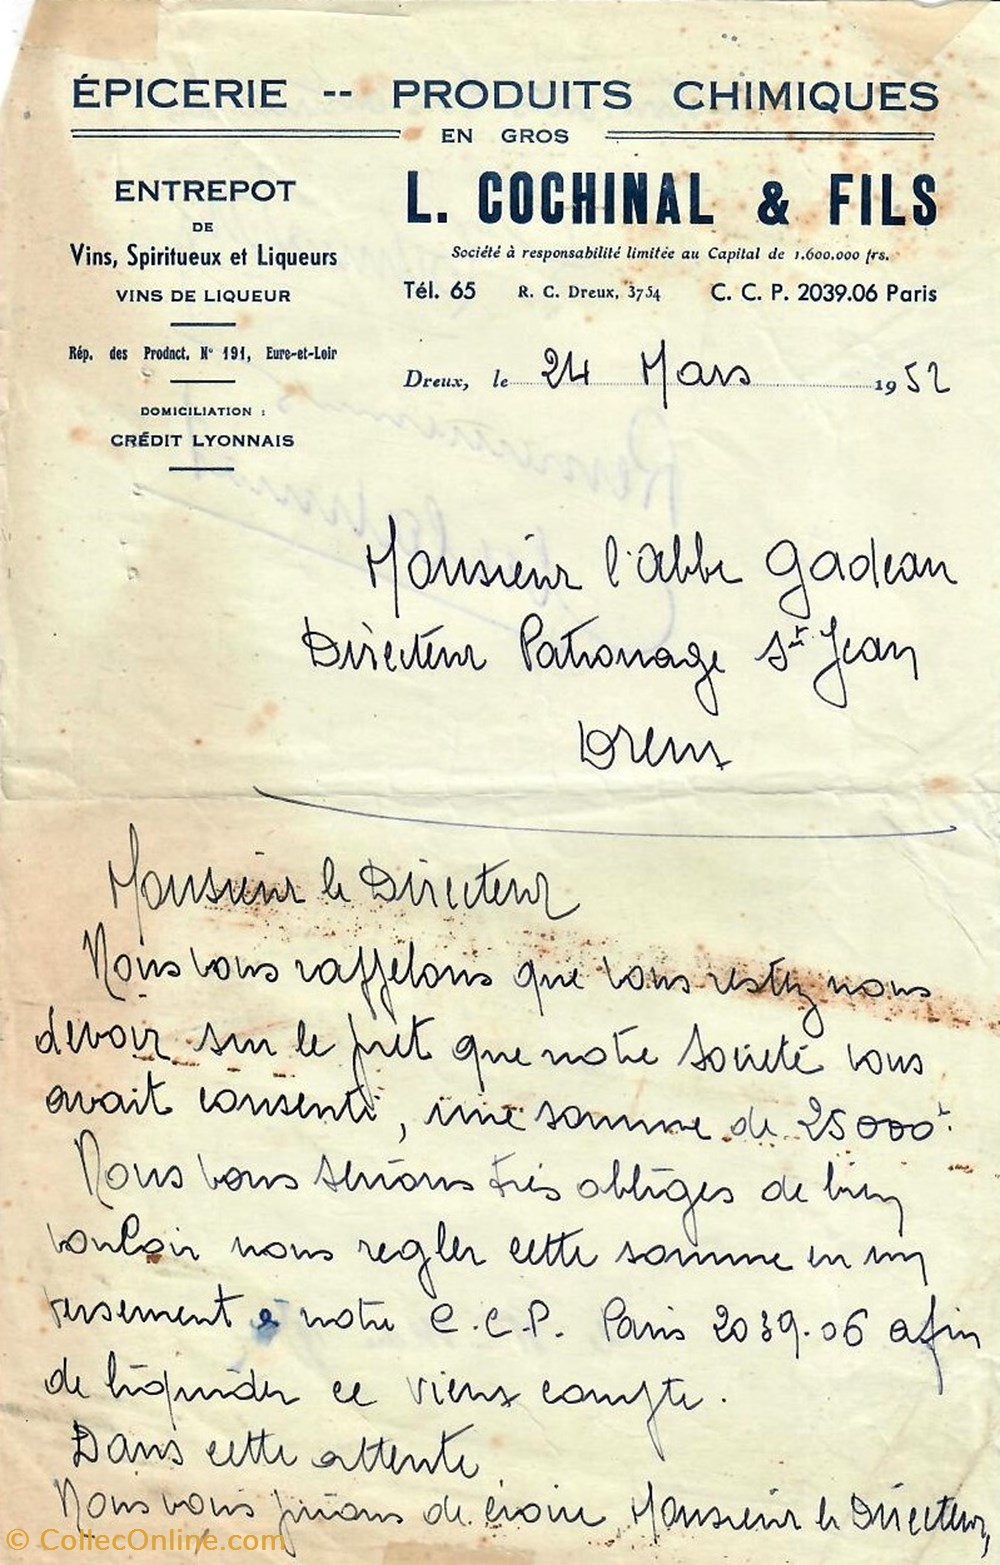 ÉPICERIE -- PRODUITS CHIMIQUES
EN GROS
ENTREPOT
DE
Vins, Spiritueux et Liqueurs
VINS DE LIQUEUR
Rép. des Prodnct. N° 191, Eure-et-Loir
DOMICILIATION :
CRÉDIT LYONNAIS
L. COCHINAL & FILS
Société à responsabilité limitée au Capital de 1.600.000 frs.
Tél. 65 R. C. Dreux, 3754 C. C. P. 2039.06 Paris
Dreux, le 24 Mars 1952
Monsieur l'Abbé Gadeau
Directeur Patronage St Jean
Dreux
Monsieur le Directeur
Nous vous rappelons que vous restez nous
devoir sur le prêt que notre Société vous
avait consenti, une somme de 25000f.
Nous vous serions très obligés de bien
vouloir nous regler cette somme en un
versement à notre C.C.P. Paris 2039.06 afin
de liquider ce vieux compte.
Dans cette attente
Nous vous prions de croire Monsieur le Directeur,
© CollecOnline.com